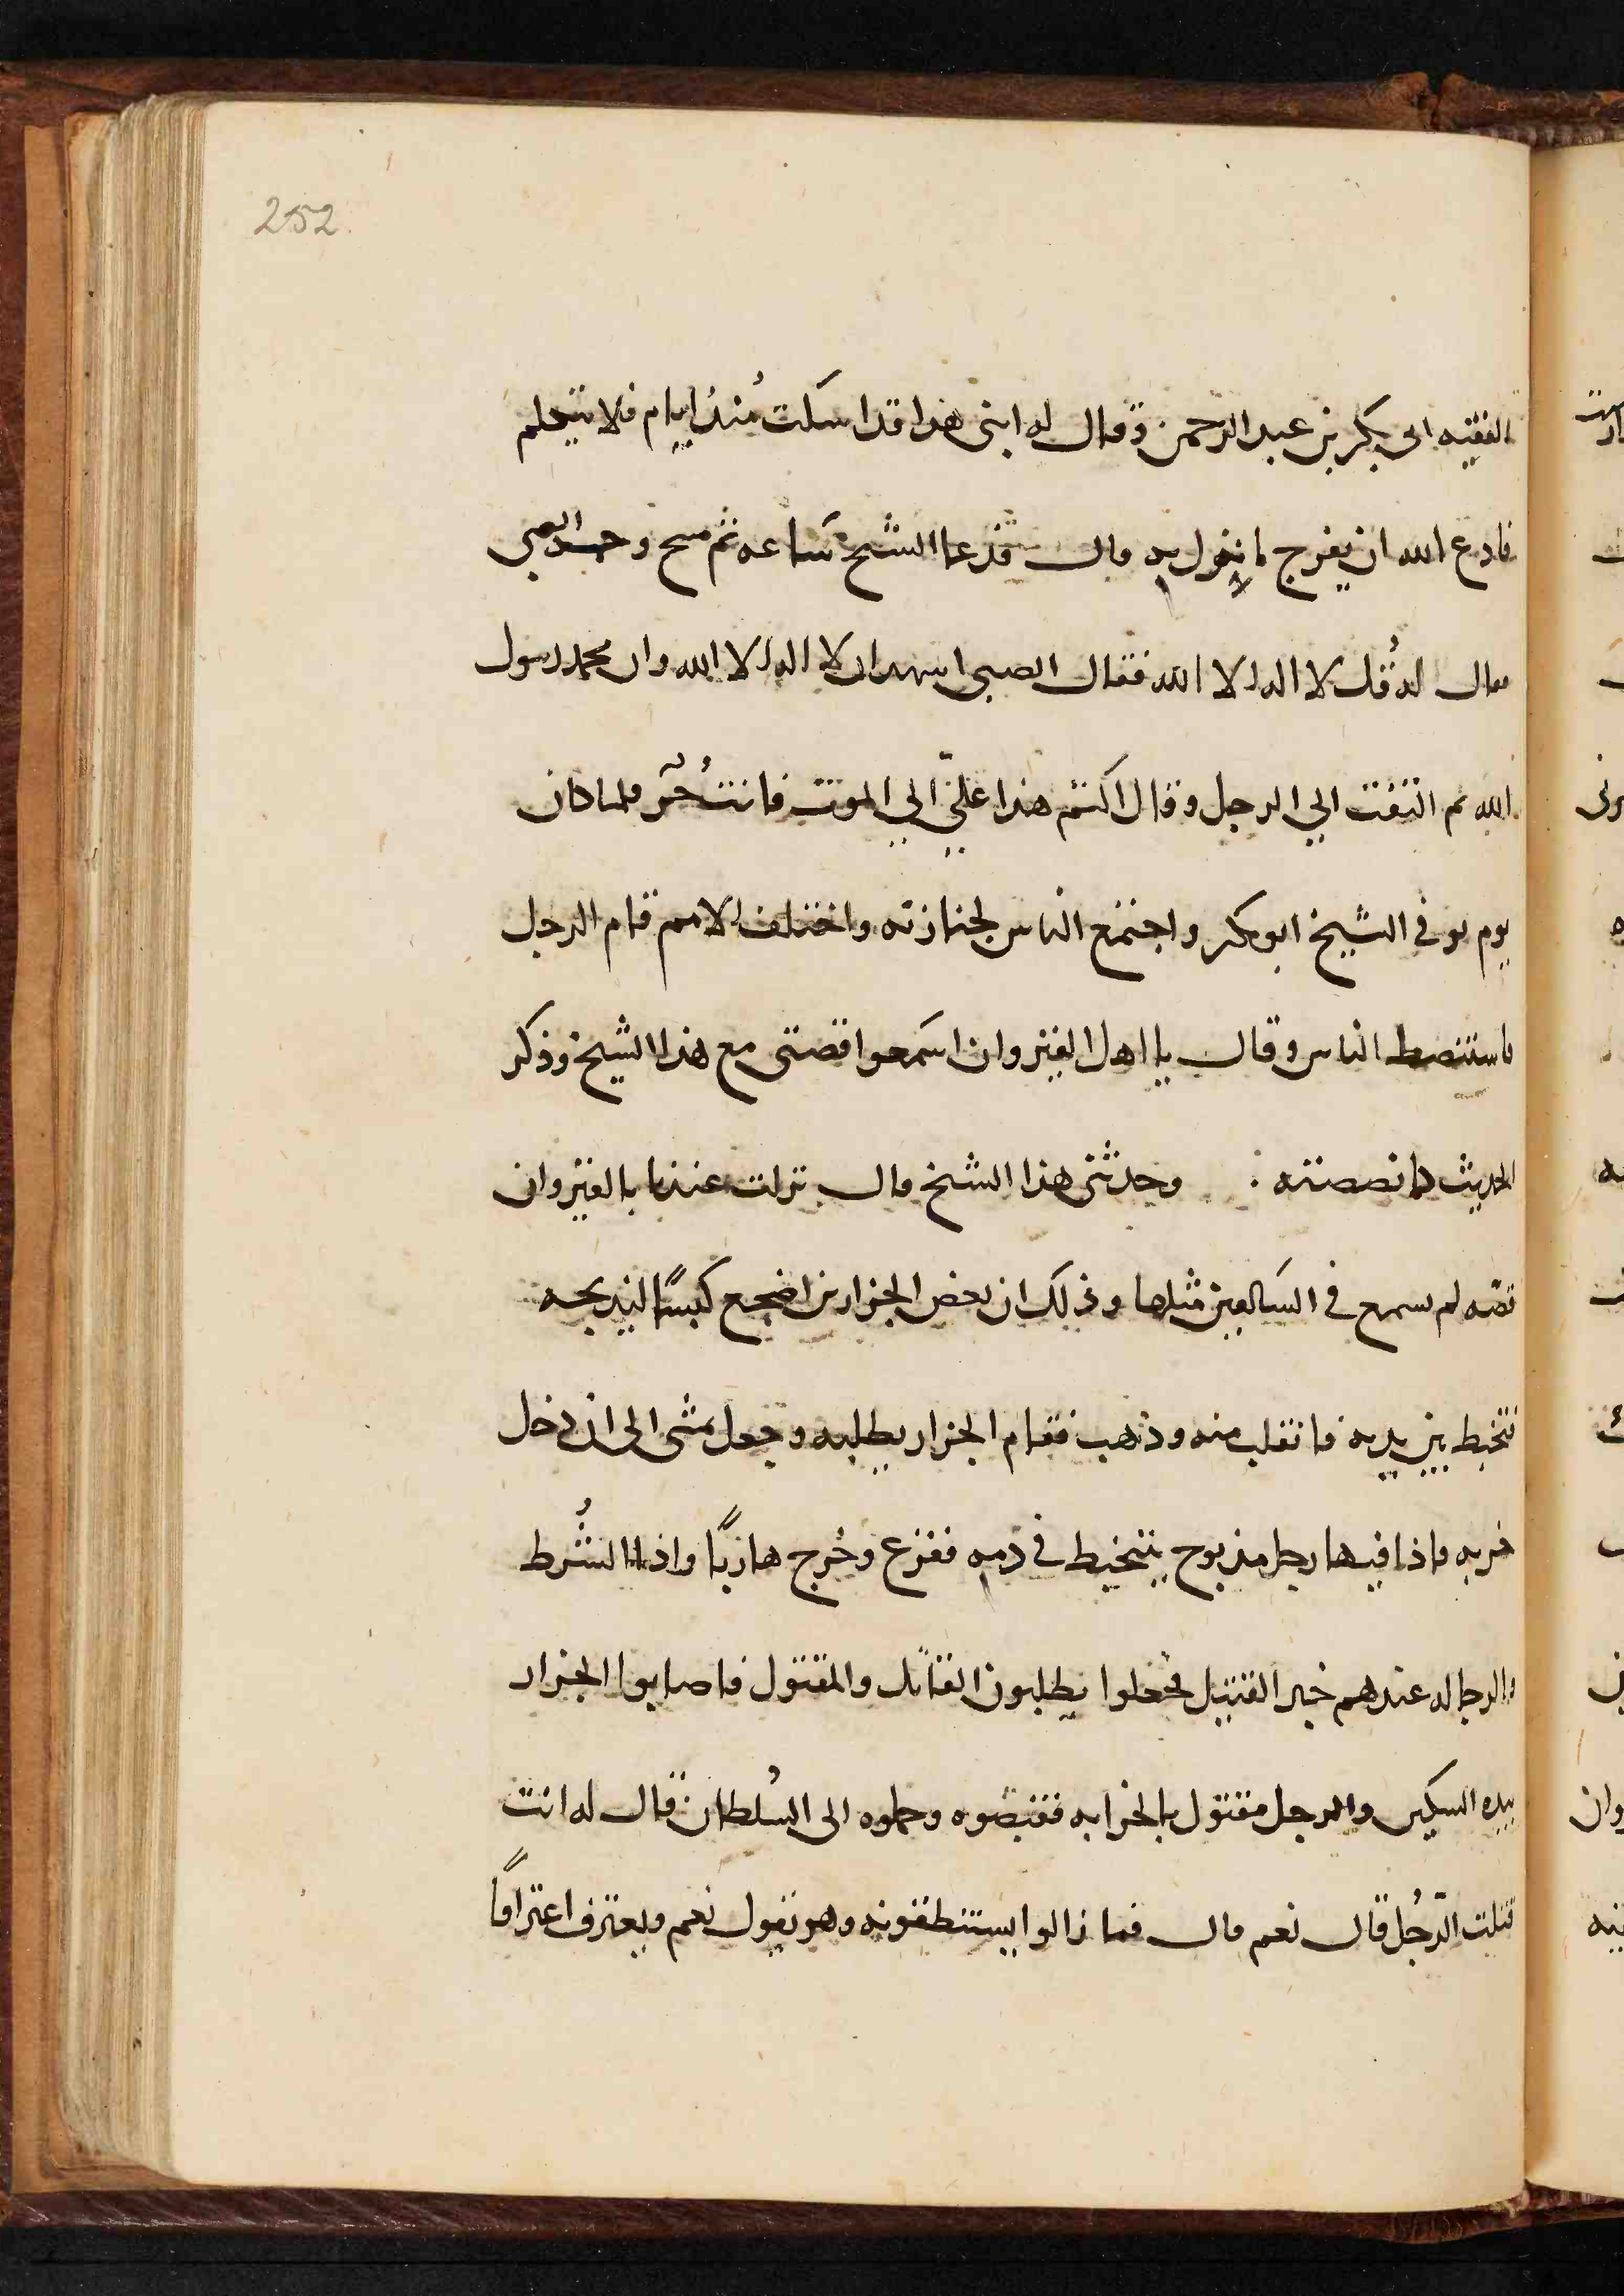 252.
الفقيه ابى بكر بن عبد الرحمن وقال له ابنى هذا قد اسكت مُنذ ايام فلا يتكلم
فادع الله ان يفرج ما نزل به قال فدعا الشيخ ساعه ثم مسح وجه الصبي
فقال له قُل لا اله الا الله فقال الصبى اشهد ان لا اله الا الله وان محمد رسول
الله ثم التفت الي الرجل وقال اكتم هذا علىّ الي الموت فانت حُر فلما كان
يوم توفى الشيخ ابو بكر واجتمع الناس لجنازته واختلف الامم قام الرجل
فاستنصط الناس وقال يا اهل القيروان اسمعوا قصتى مع هذا الشيخ وذكر
الحديث كما نصصته . وحدثنى هذا الشيخ قال نزلت عندنا بالقيروان
قصه لم يسمع في السالفين مثلها وذلك ان بعض الجزارين اضجع كبشًا ليذبحه
فتخبط بين يديه فانفلت منه وذهب فقام الجزار يطلبه وجعل يمشى الى ان دخل
خربه فاذا فيها رجل مذبوح يتخبط في دمه ففزع وخرج هاربًا واذا الشُرط
والرجاله عندهم خبر القتيل فجعلوا يطلبون القاتل والمقتول فاصابوا الجزار
بيده السكين والرجل مقتول بالخرابه فقبضوه وحملوه الى السُلطان فقال له انت
قتلت الرّجُل قال نعم قال فما زالوا يستنطقونه وهو يقول نعم ويعترف اعترافًا